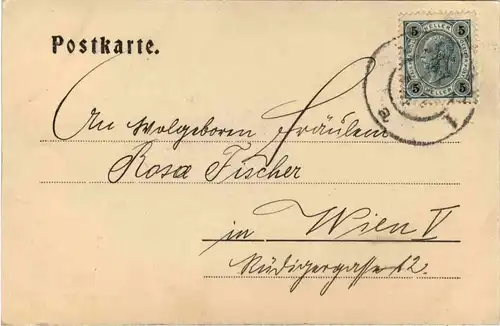 Postkarte.
5 HELLER 5
5 HELLER 5
a 1
An Wolgeboren Fräulein
Rosa Fischer
in Wien V
Rüdigergasse 12.